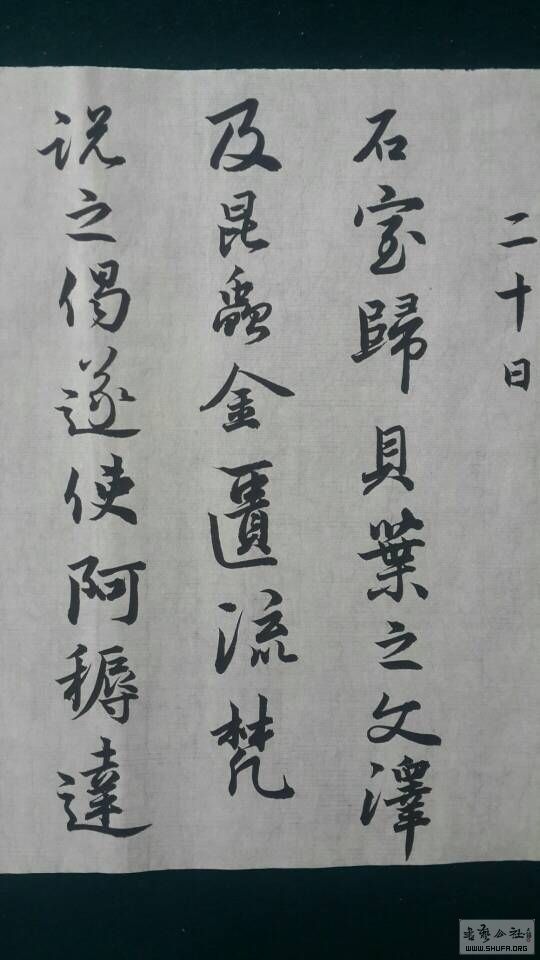 二十日
石室歸貝葉之文澤
及昆蟲金匱流梵
说之偈遂使阿耨達
WWW.SHUFA.ORG